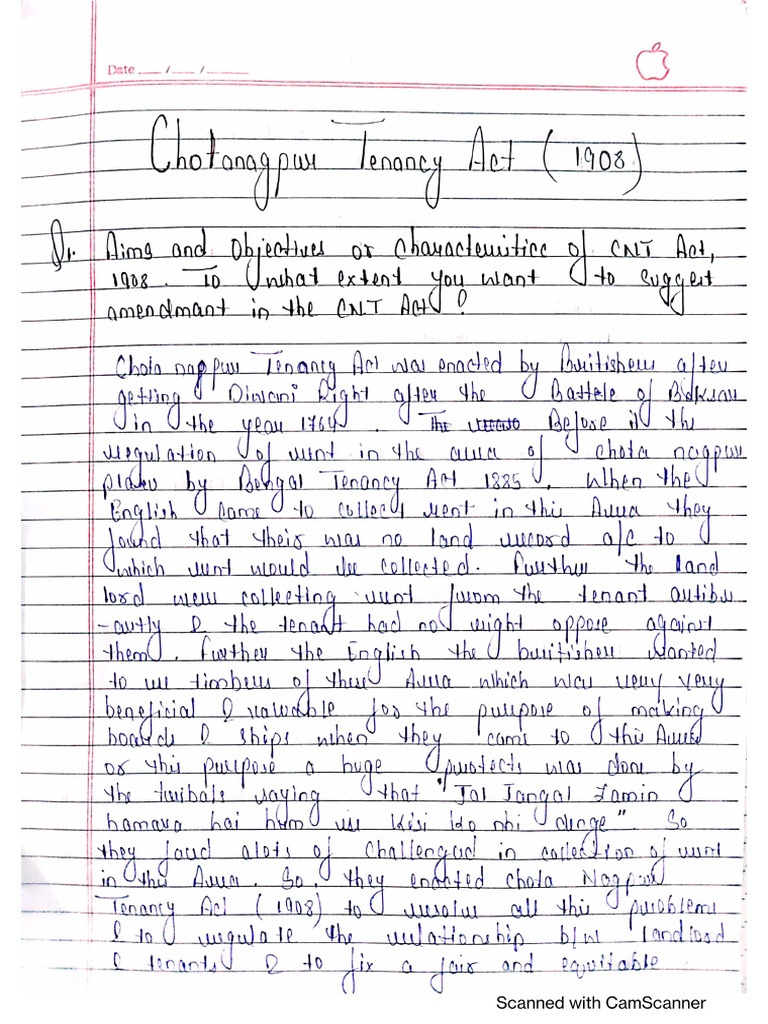 Date ___ / ___ / ______
Chotanagpur Tenancy Act ( 1908 )
Q1. Aims and Objectives or Characteristics of CNT Act,
1908. To what extent you want to suggest
amendmant in the CNT Act ?
Chota nagpur Tenancy Act was enacted by Buritishers after
getting Diwani Right after the Battele of
in the year 1764 . Before it the
regulation of rent in the area of chota nagpur
by Bengal Tenancy Act 1885 . When the
English came to collect rent in this Area they
found that their was no land record a/c to
which rent would be collected. Further the land
lord were collecting rent from the tenant
& the tenant had no right oppose against
them. Further the English the buritisher wanted
to use timbers of their Area which was very very
beneficial & valuable for the purpose of making
boards & ships when they came to this Area
or this purpose a huge protects was done by
the tribals saying that "Jal Jangal Zamin
hamara hai hum ise kisi ko nhi denge". So
they faced alots of in collection of rent
in this Area. So, they enacted chota Nagpur
Tenancy Act ( 1908 ) to resolve all this problems
& to regulate the relationship b/w landlord
& tenants & to fix a fair and equitable
Scanned with CamScanner